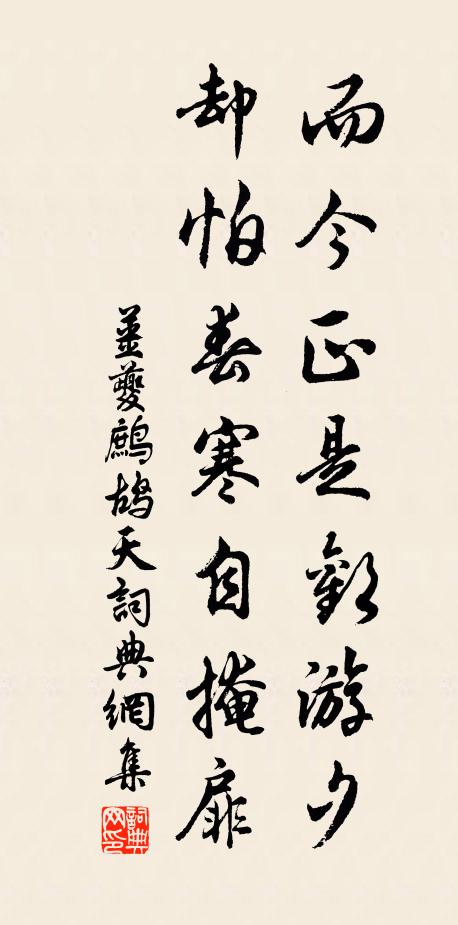 而今正是歡游夕
却怕春寒自掩扉
姜夔鷓鴣天詞典網集
詞典網印